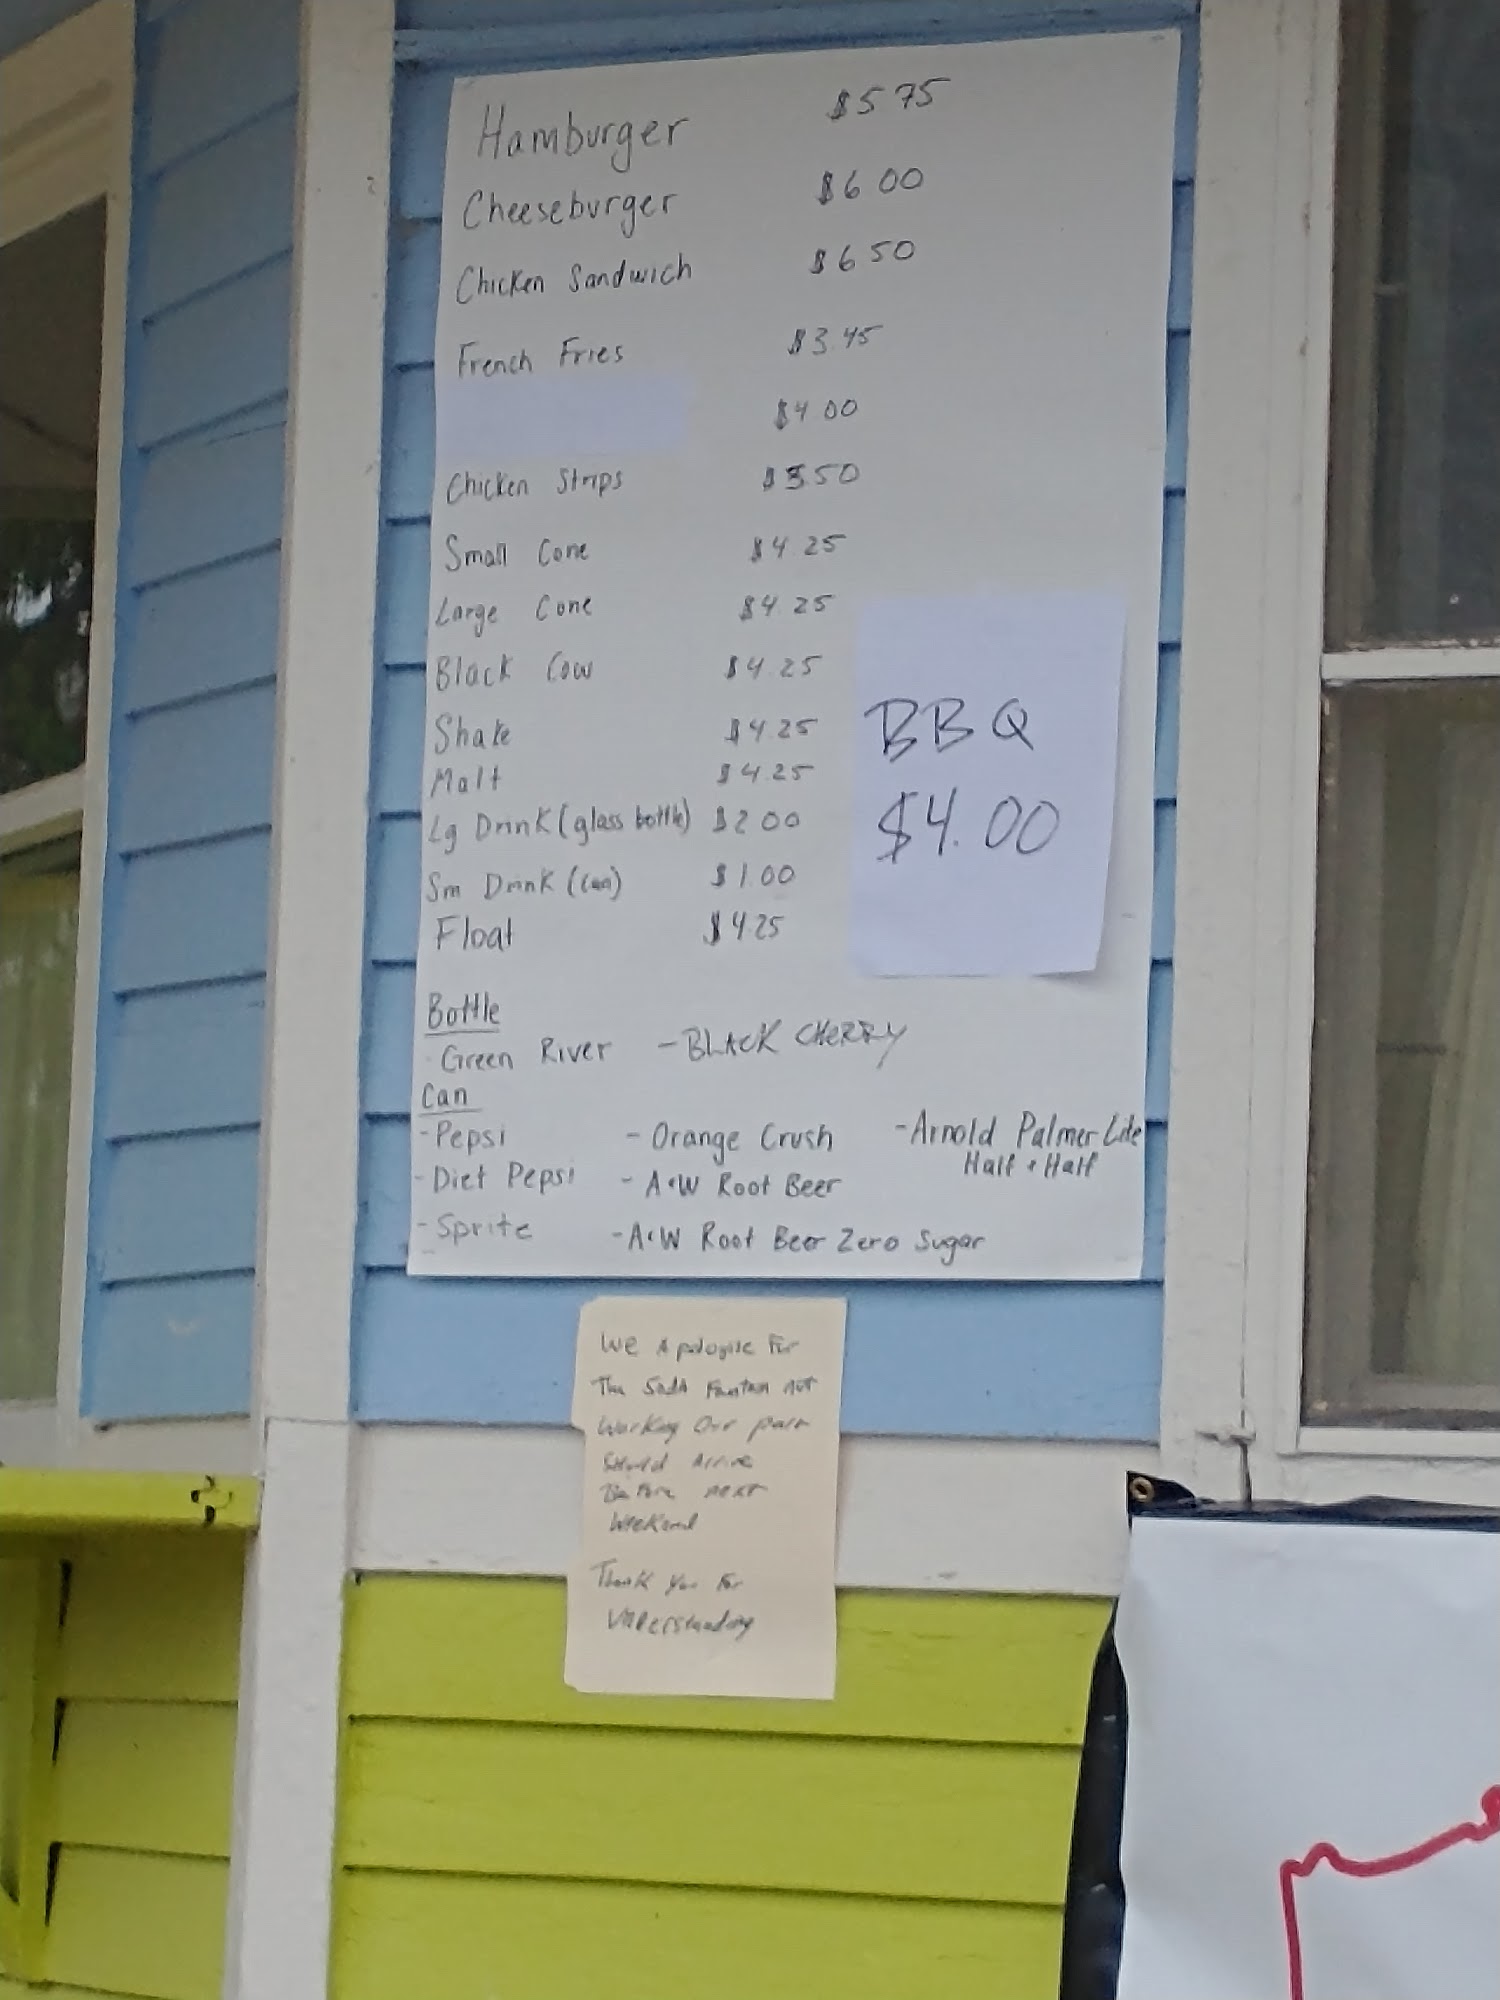 Hamburger $5 75
Cheeseburger $6 00
Chicken Sandwich $6 50
French Fries $3.45
$4 00
Chicken Strips $3.50
Small Cone $4.25
Large Cone $4.25
Black Cow $4.25
Shake $4.25
Malt $4.25
Lg Drink (glass bottle) $2 00
Sm Drink (can) $1.00
Float $4.25
BBQ
$4.00
Bottle
- Green River - BLACK CHERRY
Can
- Pepsi - Orange Crush - Arnold Palmer Lite
Half + Half
- Diet Pepsi - A&W Root Beer
- Sprite - A&W Root Beer Zero Sugar
We Apologise For
The Soda Fountan not
Working Our part
Should Arrive
Before next
Weekend
Thank You For
Understanding